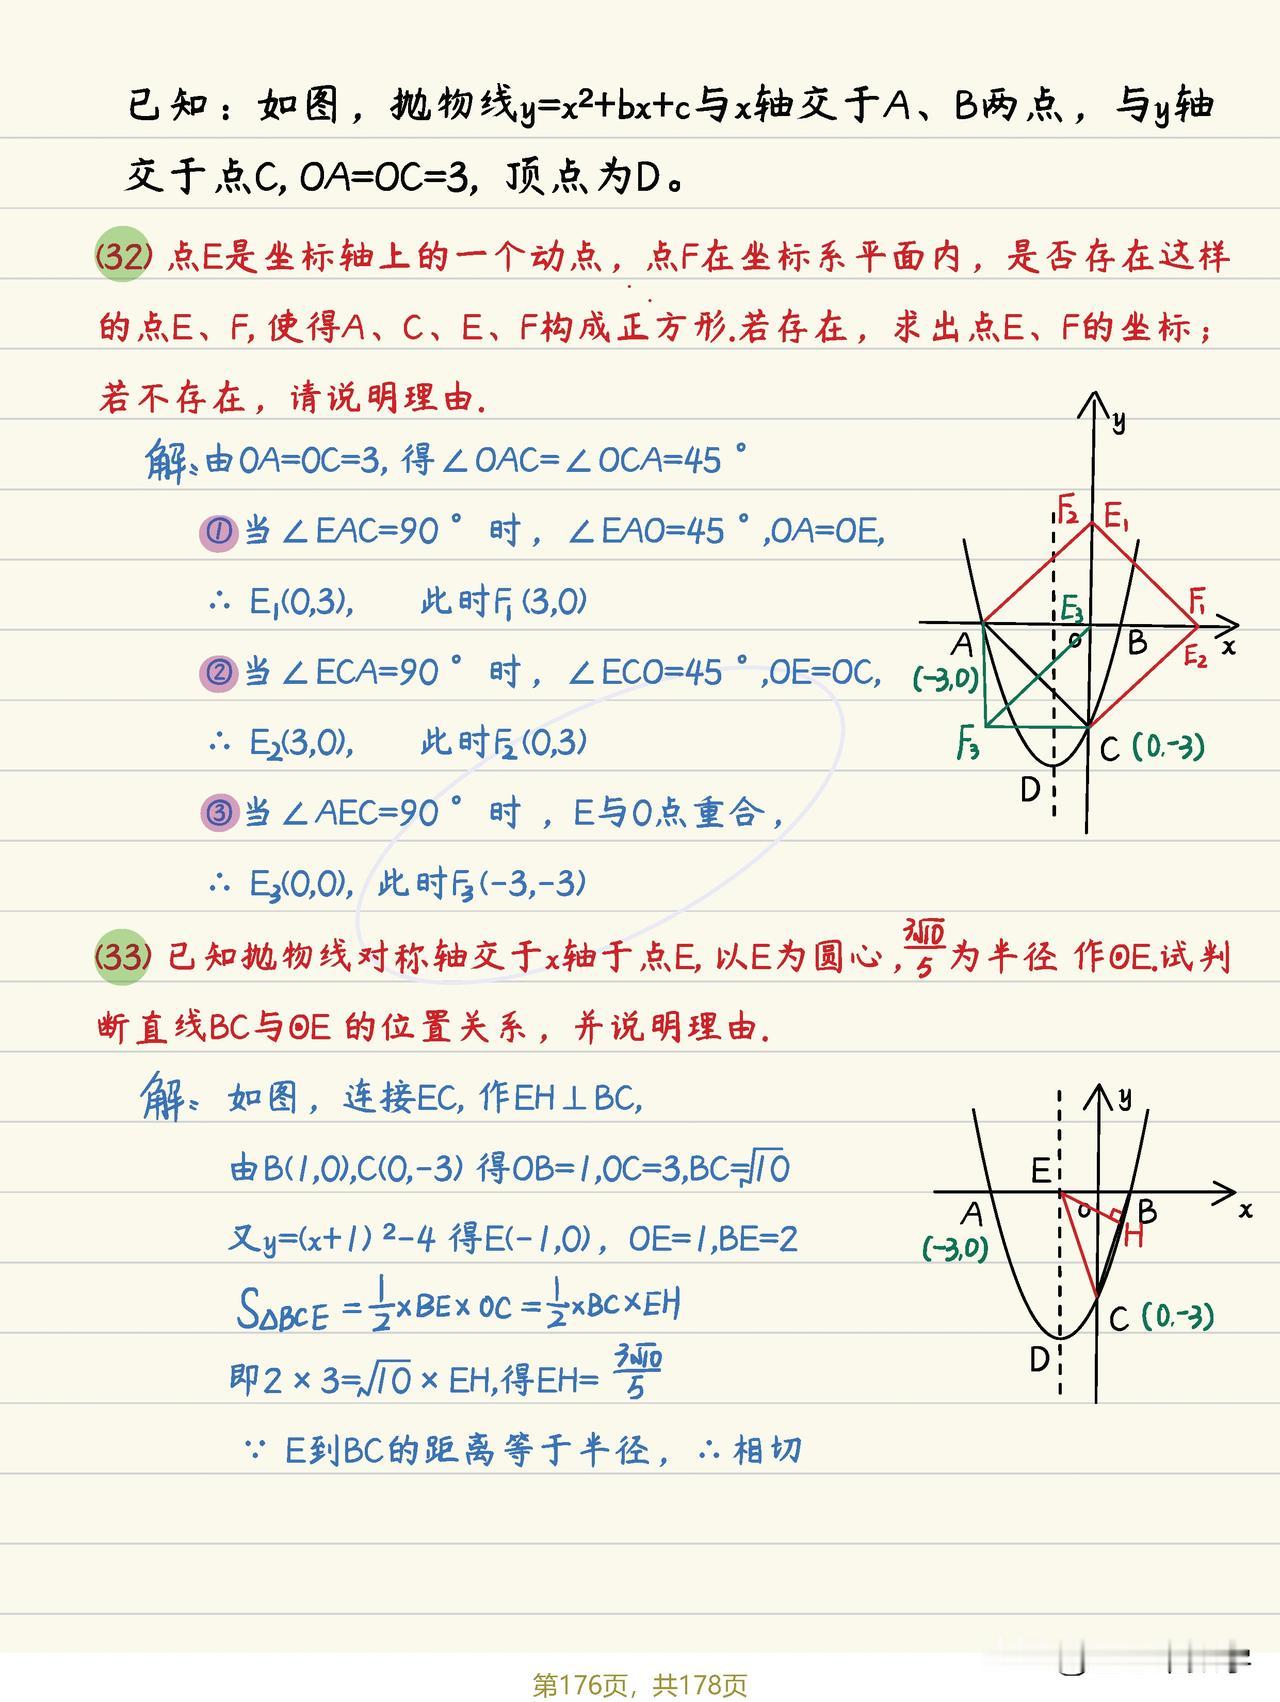 已知：如图，抛物线y=x²+bx+c与x轴交于A、B两点，与y轴
交于点C, OA=OC=3, 顶点为D。
(32) 点E是坐标轴上的一个动点，点F在坐标系平面内，是否存在这样
的点E、F, 使得A、C、E、F构成正方形.若存在，求出点E、F的坐标；
若不存在，请说明理由.
解: 由OA=OC=3, 得∠OAC=∠OCA=45°
① 当∠EAC=90°时，∠EAO=45°,OA=OE,
∴ E₁(0,3), 此时F₁(3,0)
② 当∠ECA=90°时，∠ECO=45°,OE=OC,
∴ E₂(3,0), 此时F₂(0,3)
③ 当∠AEC=90°时，E与O点重合，
∴ E₃(0,0), 此时F₃(-3,-3)
y
F₂ E₁
E₃ F₁
A O B E₂ x
(-3,0)
F₃ C (0,-3)
D
(33) 已知抛物线对称轴交于x轴于点E, 以E为圆心, 3√10/5 为半径 作⊙E.试判
断直线BC与⊙E 的位置关系，并说明理由.
解: 如图，连接EC, 作EH⊥BC,
由B(1,0),C(0,-3) 得OB=1,OC=3,BC=√10
又y=(x+1)²-4 得E(-1,0)，OE=1,BE=2
S△BCE = 1/2×BE×OC = 1/2×BC×EH
即2×3=√10×EH,得EH= 3√10/5
∵ E到BC的距离等于半径，∴相切
y
E
A O B x
(-3,0) H
C (0,-3)
D
第176页，共178页